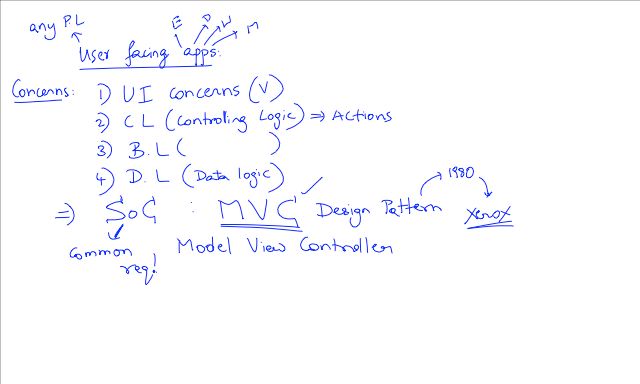 any PL E D W M
User facing apps:
Concerns: 1) UI concerns (V)
2) CL (Controling Logic) ⇒ Actions
3) B.L ( )
4) D.L (Data logic)
⇒ SoC : MVC Design Pattern → 1980 → Xerox
common req! Model View Controller